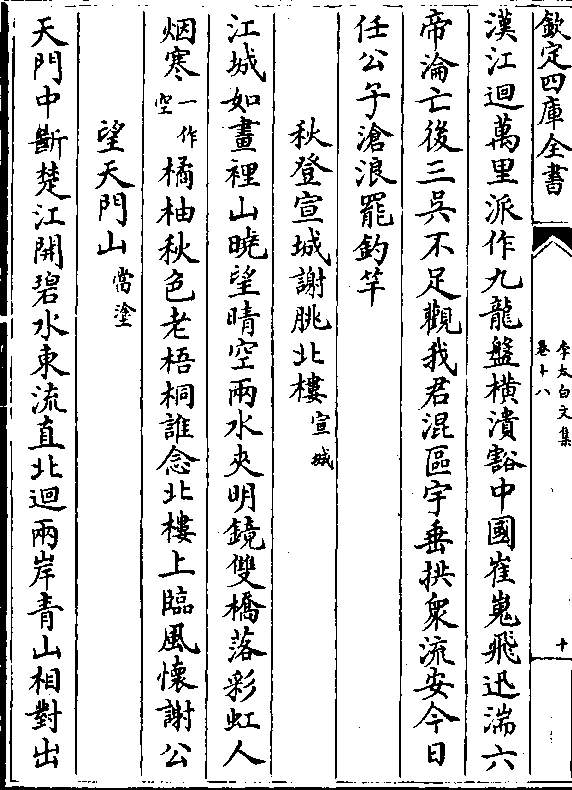 欽定四庫全書
李太白文集
卷十八
十
漢江迴萬里派作九龍盤橫潰豁中國崔嵬飛迅湍六
帝淪亡後三吳不足觀我君混區宇垂拱衆流安今日
任公子滄浪罷釣竿
秋登宣城謝脁北樓宣城
江城如畫裡山曉望晴空兩水夾明鏡雙橋落彩虹人
烟寒一作空橘柚秋色老梧桐誰念北樓上臨風懷謝公
望天門山當塗
天門中斷楚江開碧水東流直北迴兩岸青山相對出